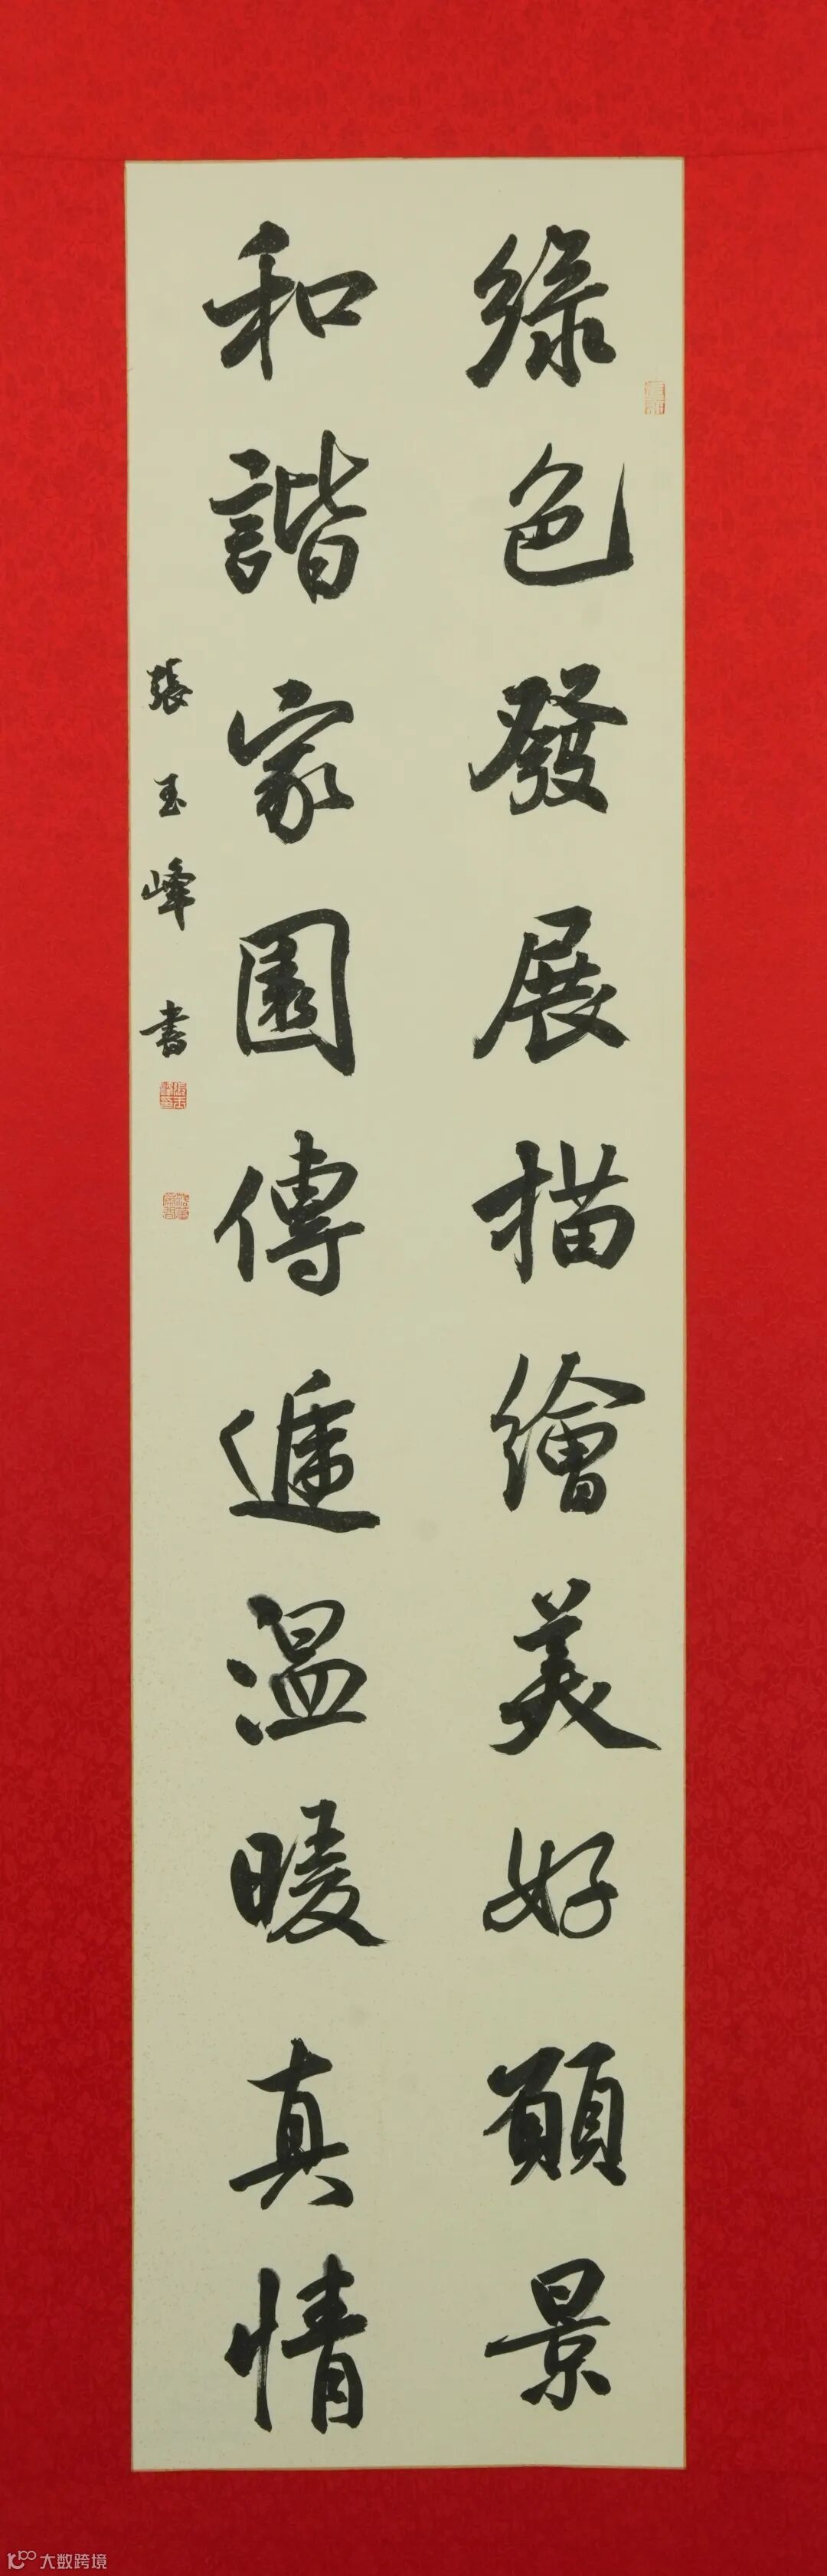 綠色發展描繪美好願景
和諧家園傳遞温暖真情
張玉峰書
大数跨境